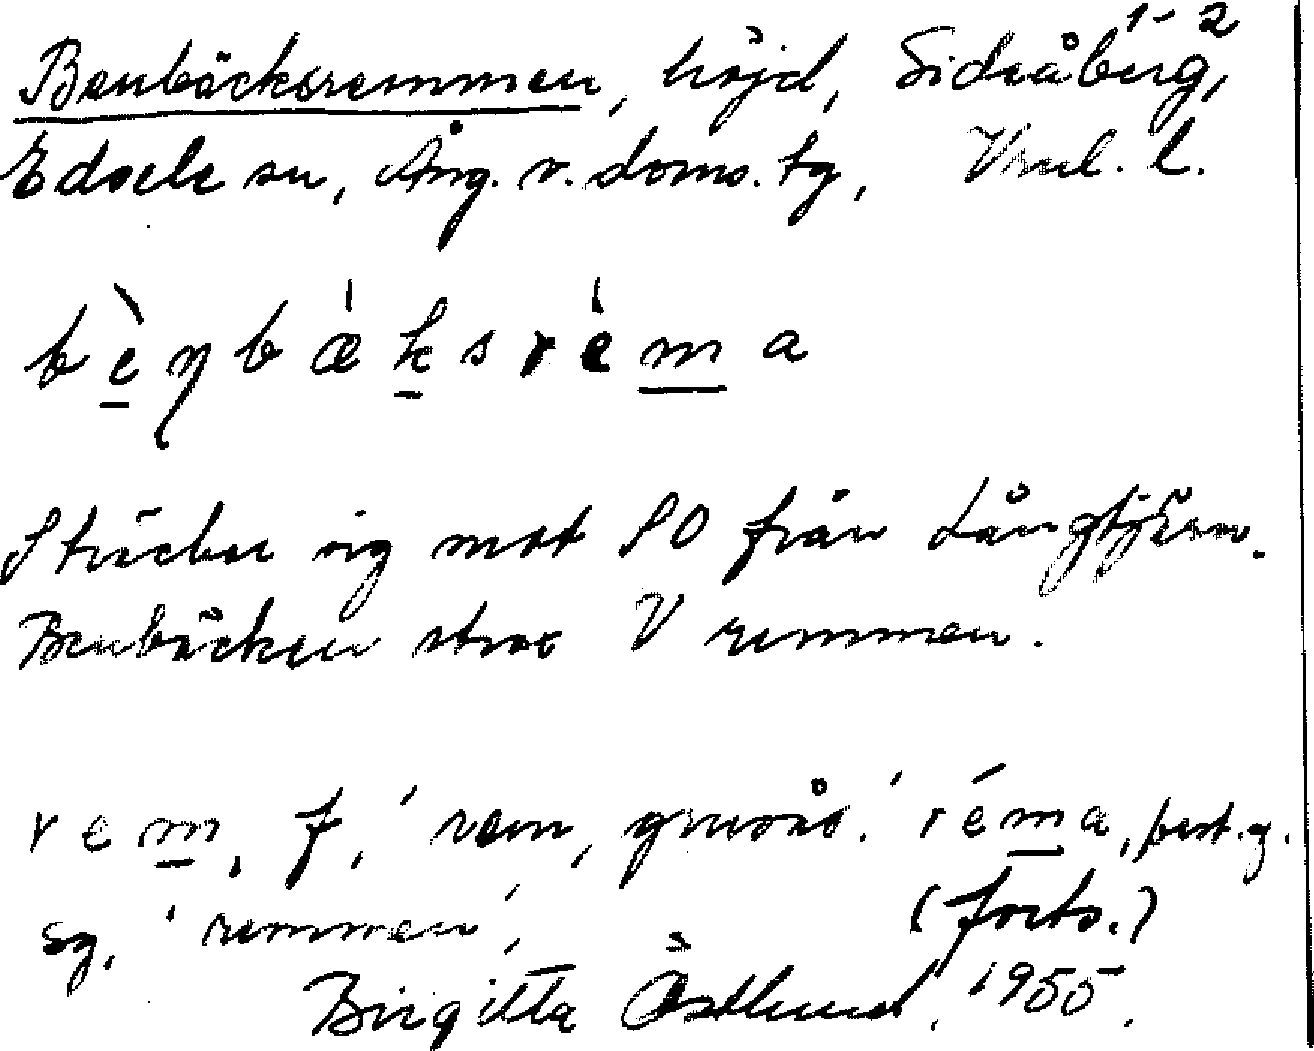 Benbäcksremmen, höjd, Sidsåberg, 1-2
Edsele sn, Ång. v. doms. tg, Vnl. l.
bèŋbæksrèma
Sträcker sig mot SO från Långtjärn.
Benbäcken strax V remmen.
rem, f, ' rem, grusås.' réma, best. f.
sg. 'remmen', (forts.)
Birgitta Östlund, 1955.